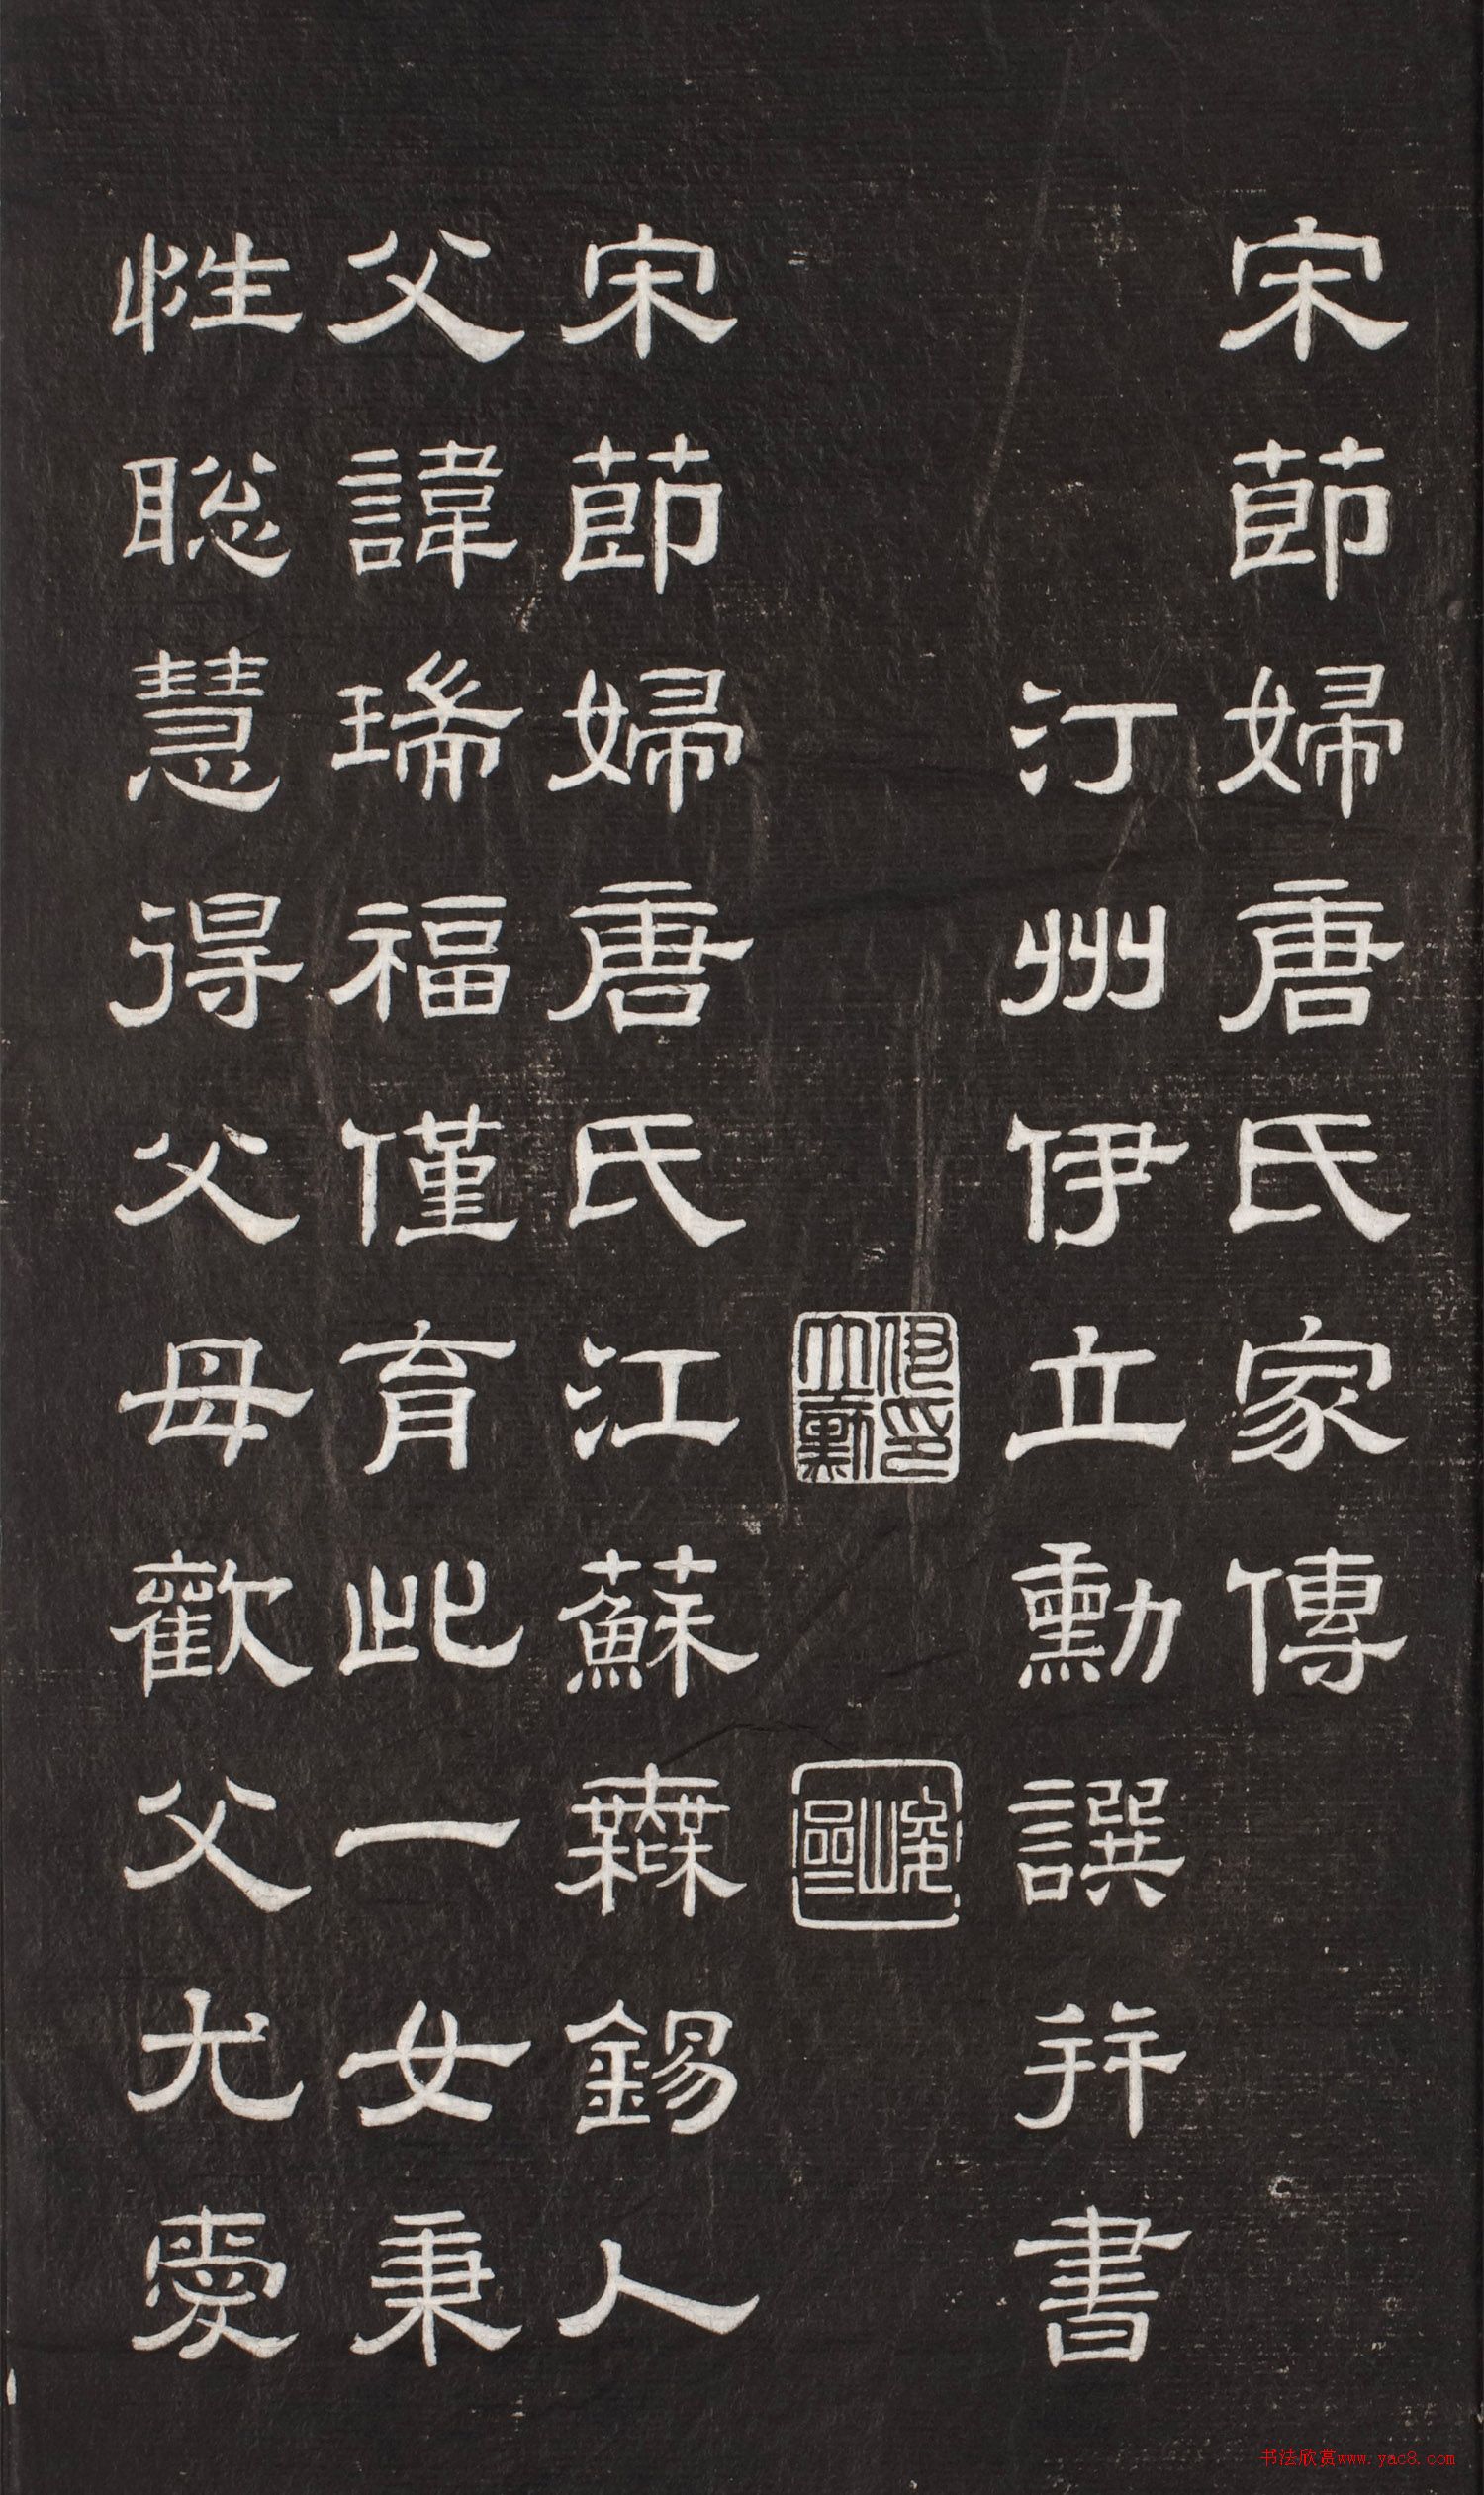 宋節婦唐氏家傳
汀州伊立勳譔并書
伊立勳印
宋節婦唐氏江蘇無錫人
父諱瑞福僅育此一女秉
性聰慧得父母歡父尤愛
书法欣赏www.yac8.com